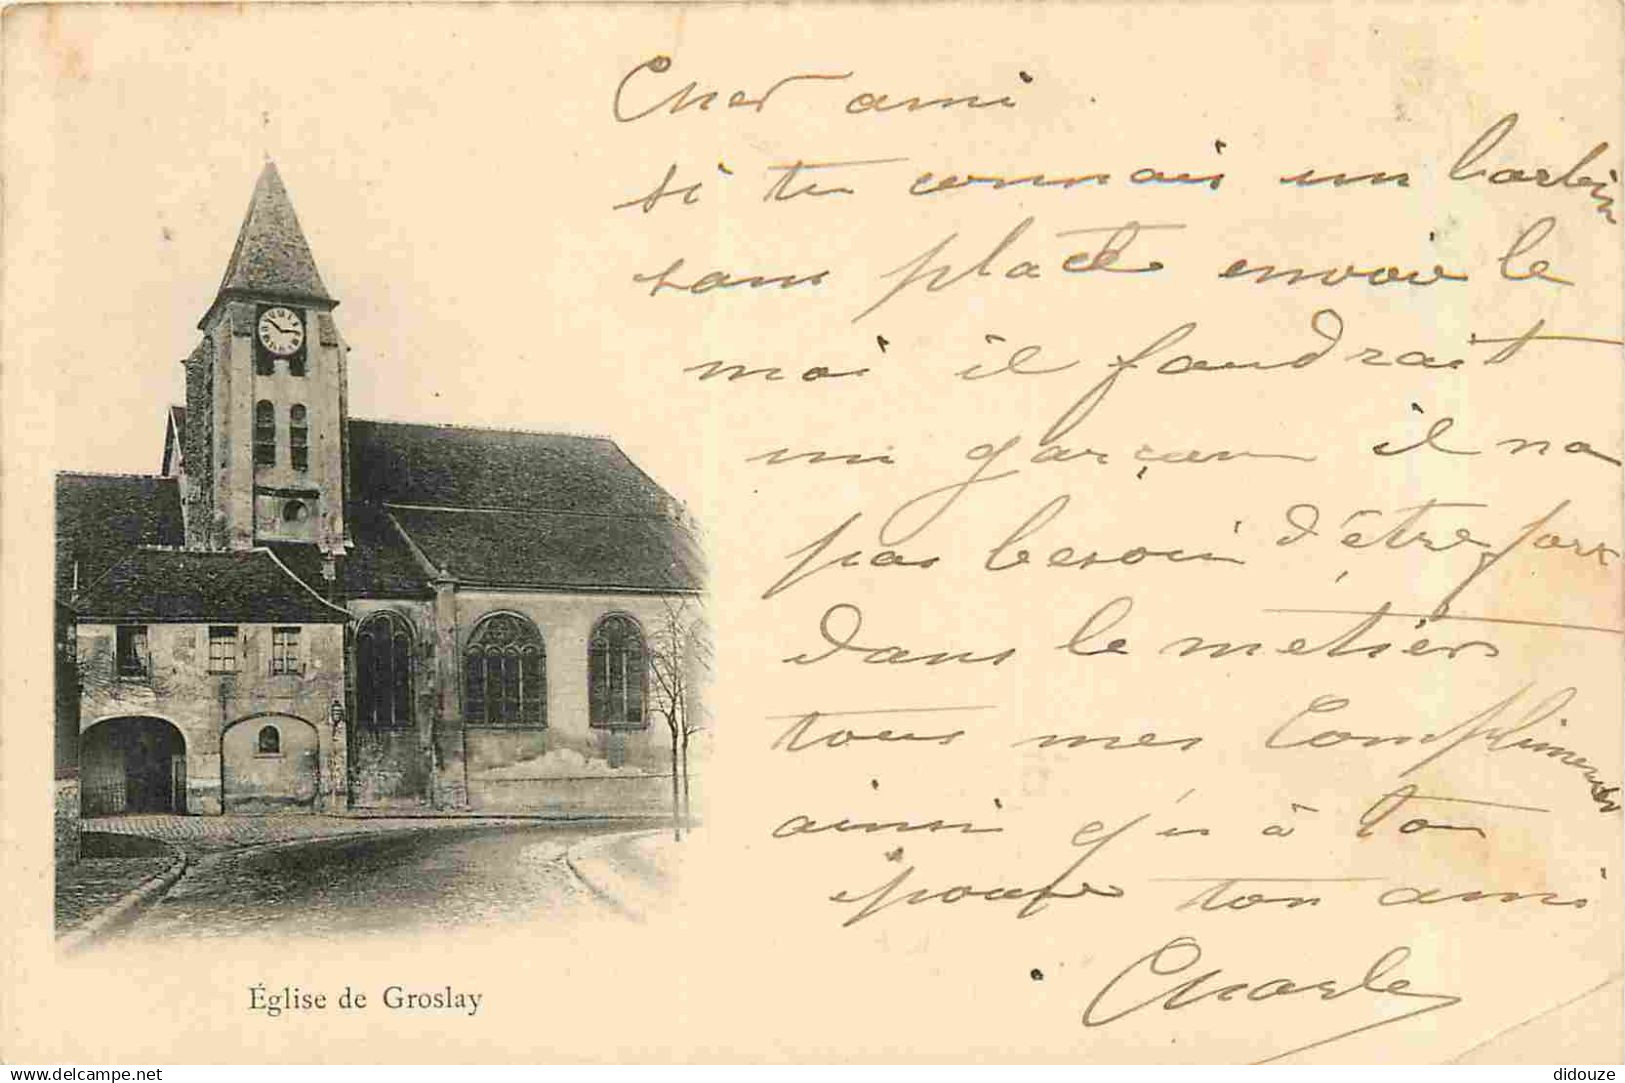 Cher ami
si tu connais un larbin
sans place envoie le
moi il faudrait
un garçon il na
pas besoin d'être fort
dans le metier
tous mes Compliments
ainsi qu'à ton
épouse ton ami
Charles
Église de Groslay
delcampe.net
didouze